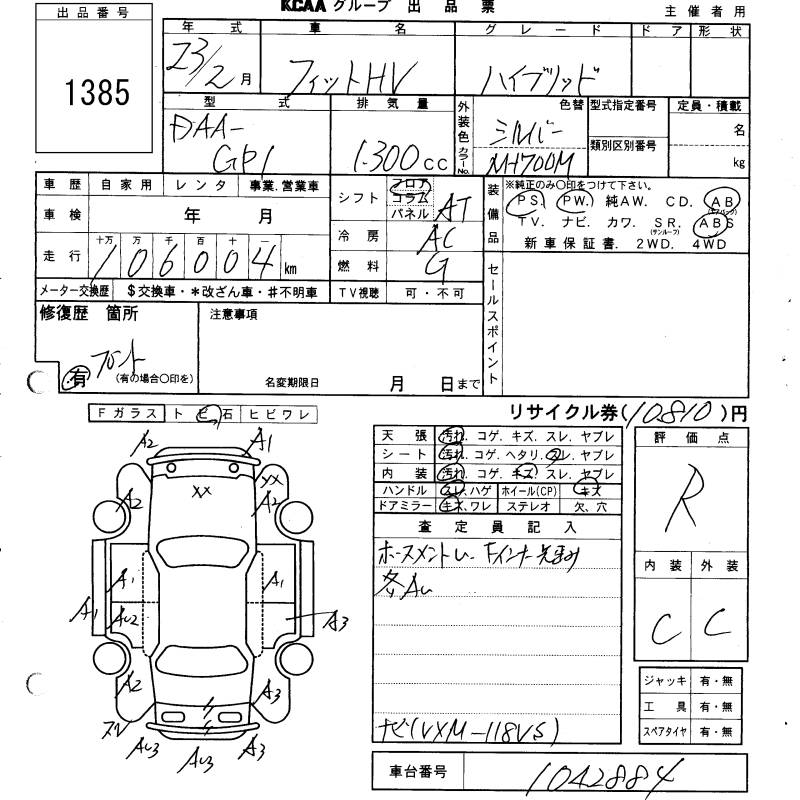 出品番号
1385
KCAA グループ 出 品 票
主 催 者 用
年 式
車 名
グ レ ー ド
ド ア
形 状
23/2 月
フィットHV
ハイブリッド
型 式
排 気 量
外装色 カラーNo.
色替
型式指定番号
定員・積載
DAA-
GP1
1.300 cc
シルバー
NH700M
類別区別番号
名
kg
車 歴
自 家 用
レ ン タ
事業.営業車
車 検
年 月
走 行
十万 万 千 百 十 一
1 0 6 0 0 4 km
メーター交換歴
$交換車・*改ざん車・#不明車
シフト
フロア
コラム
パネル
AT
冷 房
AC
燃 料
G
TV視聴
可・不可
装備品
※純正のみ〇印をつけて下さい。
PS. PW. 純AW. CD. AB
(エアバッグ)
TV. ナビ. カワ. SR. ABS
(サンルーフ)
新車保証書. 2WD. 4WD
セールスポイント
修復歴 箇所
フロント
有
(有の場合〇印を)
注意事項
名変期限日 月 日まで
リサイクル券(10810)円
Fガラス
ト ビ 石
ヒビワレ
A2
A1
XX
XX
A2
A2
A1
A1
A1
AU2
A3
A2
A3
スレ
AU3
AU3
A3
天 張
汚れ. コゲ. キズ. スレ. ヤブレ
シート
汚れ. コゲ. ヘタリ. スレ. ヤブレ
内 装
汚れ. コゲ. キズ. スレ. ヤブレ
ハンドル
スレ.ハゲ
ホイール(CP)
キズ
ドアミラー
キズ.ワレ
ステレオ
欠、穴
査 定 員 記 入
各AU
ナビ(VXM-118VS)
評 価 点
R
内 装
外 装
C
C
ジャッキ
有・無
工 具
有・無
スペアタイヤ
有・無
車台番号
1042884